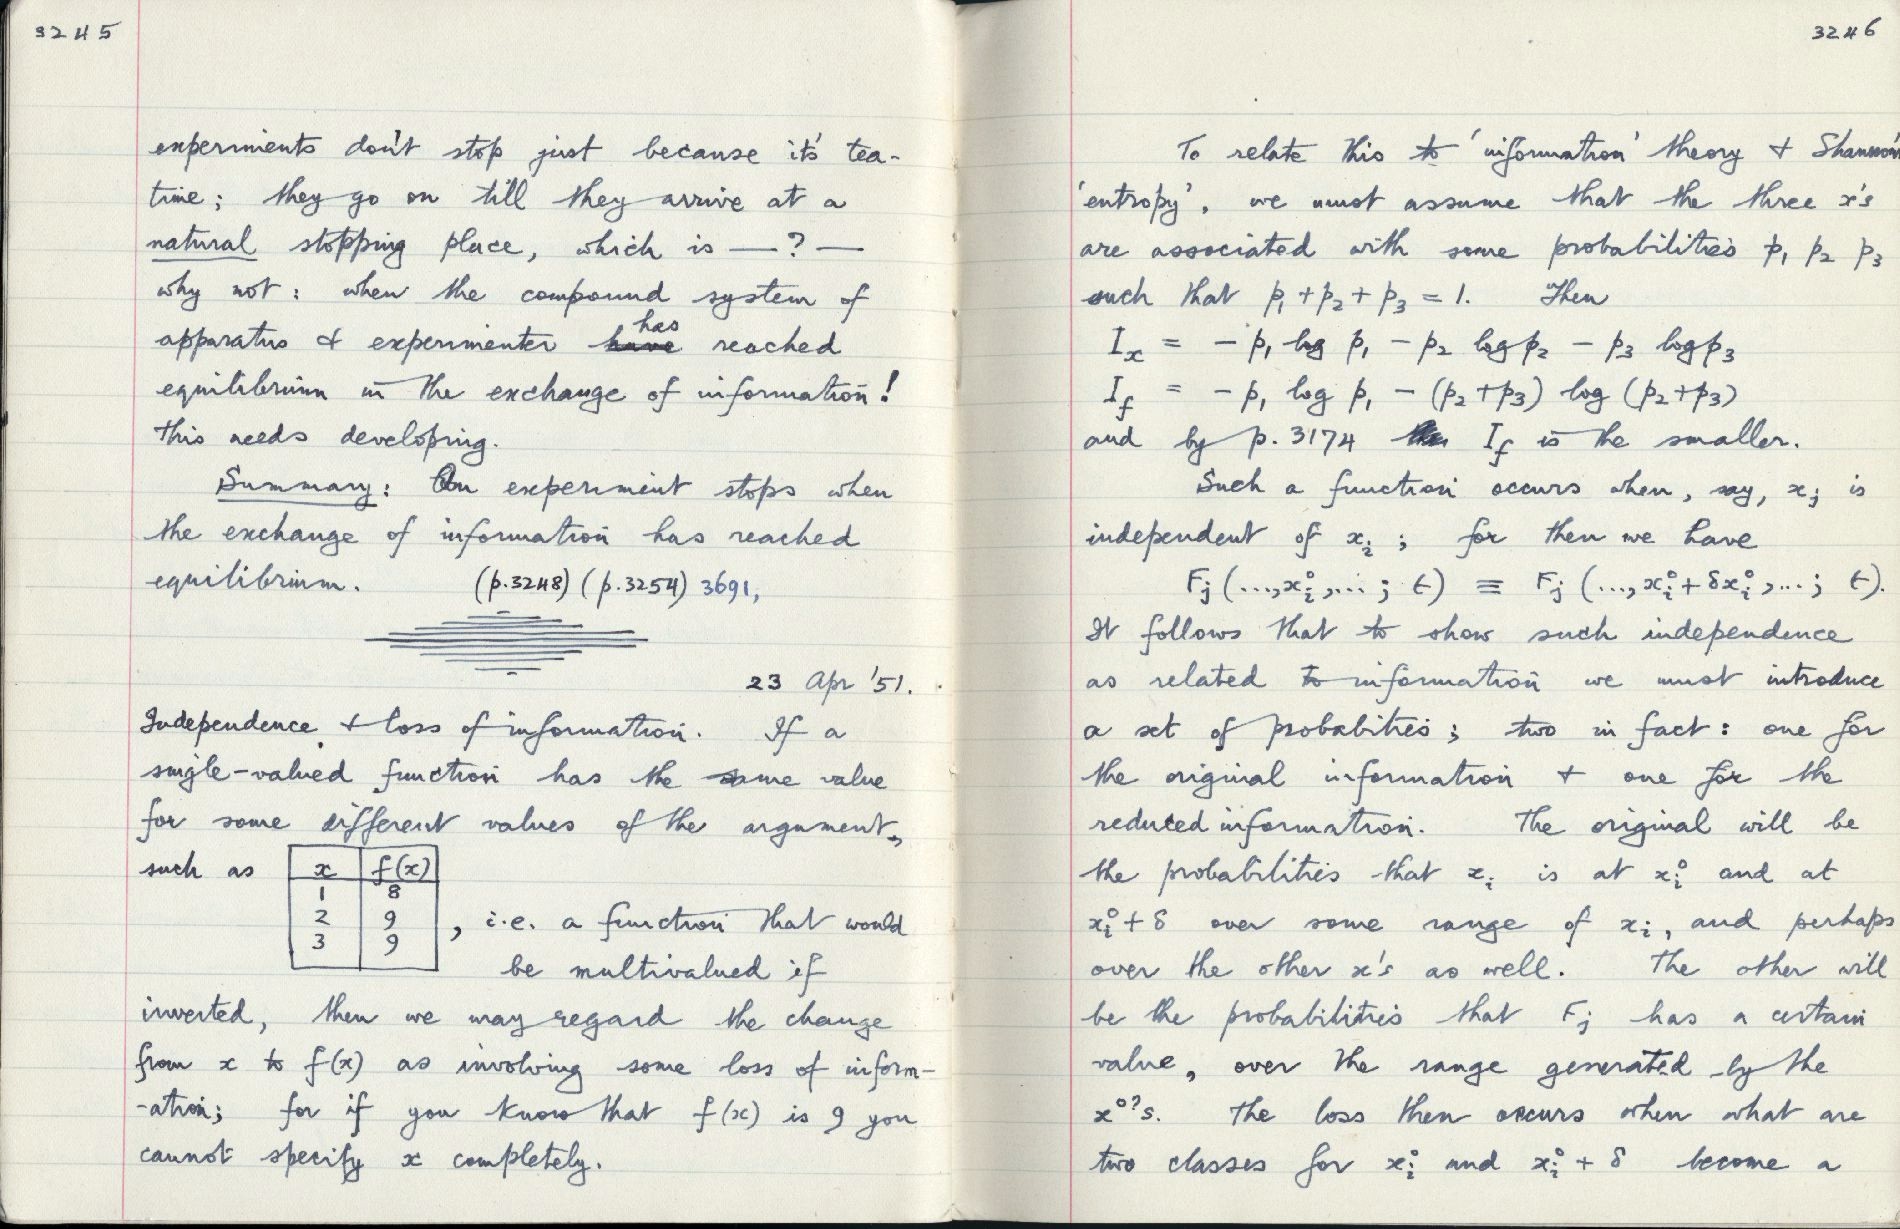 3245
experiments don't stop just because it's tea-
time; they go on till they arrive at a
natural stopping place, which is —?—
why not: when the compound system of
apparatus & experimenter have has reached
equilibrium in the exchange of information!
This needs developing.
Summary: An experiment stops when
the exchange of information has reached
equilibrium. (p.3248) (p.3254) 3691,
23 Apr '51.
Independence & loss of information. If a
single-valued function has the same value
for some different values of the argument,
such as
x f(x)
1 8
2 9
3 9
, i.e. a function that would
be multivalued if
inverted, then we may regard the change
from x to f(x) as involving some loss of inform-
-ation; for if you know that f(x) is 9 you
cannot specify x completely.
3246
To relate this to 'information' theory & Shannon's
'entropy', we must assume that the three x's
are associated with some probabilities p₁ p₂ p₃
such that p₁ + p₂ + p₃ = 1. Then
Iₓ = - p₁ log p₁ - p₂ log p₂ - p₃ log p₃
I_f = - p₁ log p₁ - (p₂+p₃) log (p₂+p₃)
and by p. 3174 I_f is the smaller.
Such a function occurs when, say, xⱼ is
independent of xᵢ; for then we have
Fⱼ (..., xᵢ°, ...; t) ≡ Fⱼ (..., xᵢ° + δxᵢ°, ...; t).
It follows that to show such independence
as related to information we must introduce
a set of probabilities; two in fact: one for
the original information & one for the
reduced information. The original will be
the probabilities that xᵢ is at xᵢ° and at
xᵢ° + δ over some range of xᵢ, and perhaps
over the other x's as well. The other will
be the probabilities that Fⱼ has a certain
value, over the range generated by the
x°'s. The loss then occurs when what are
two classes for xᵢ° and xᵢ° + δ become a